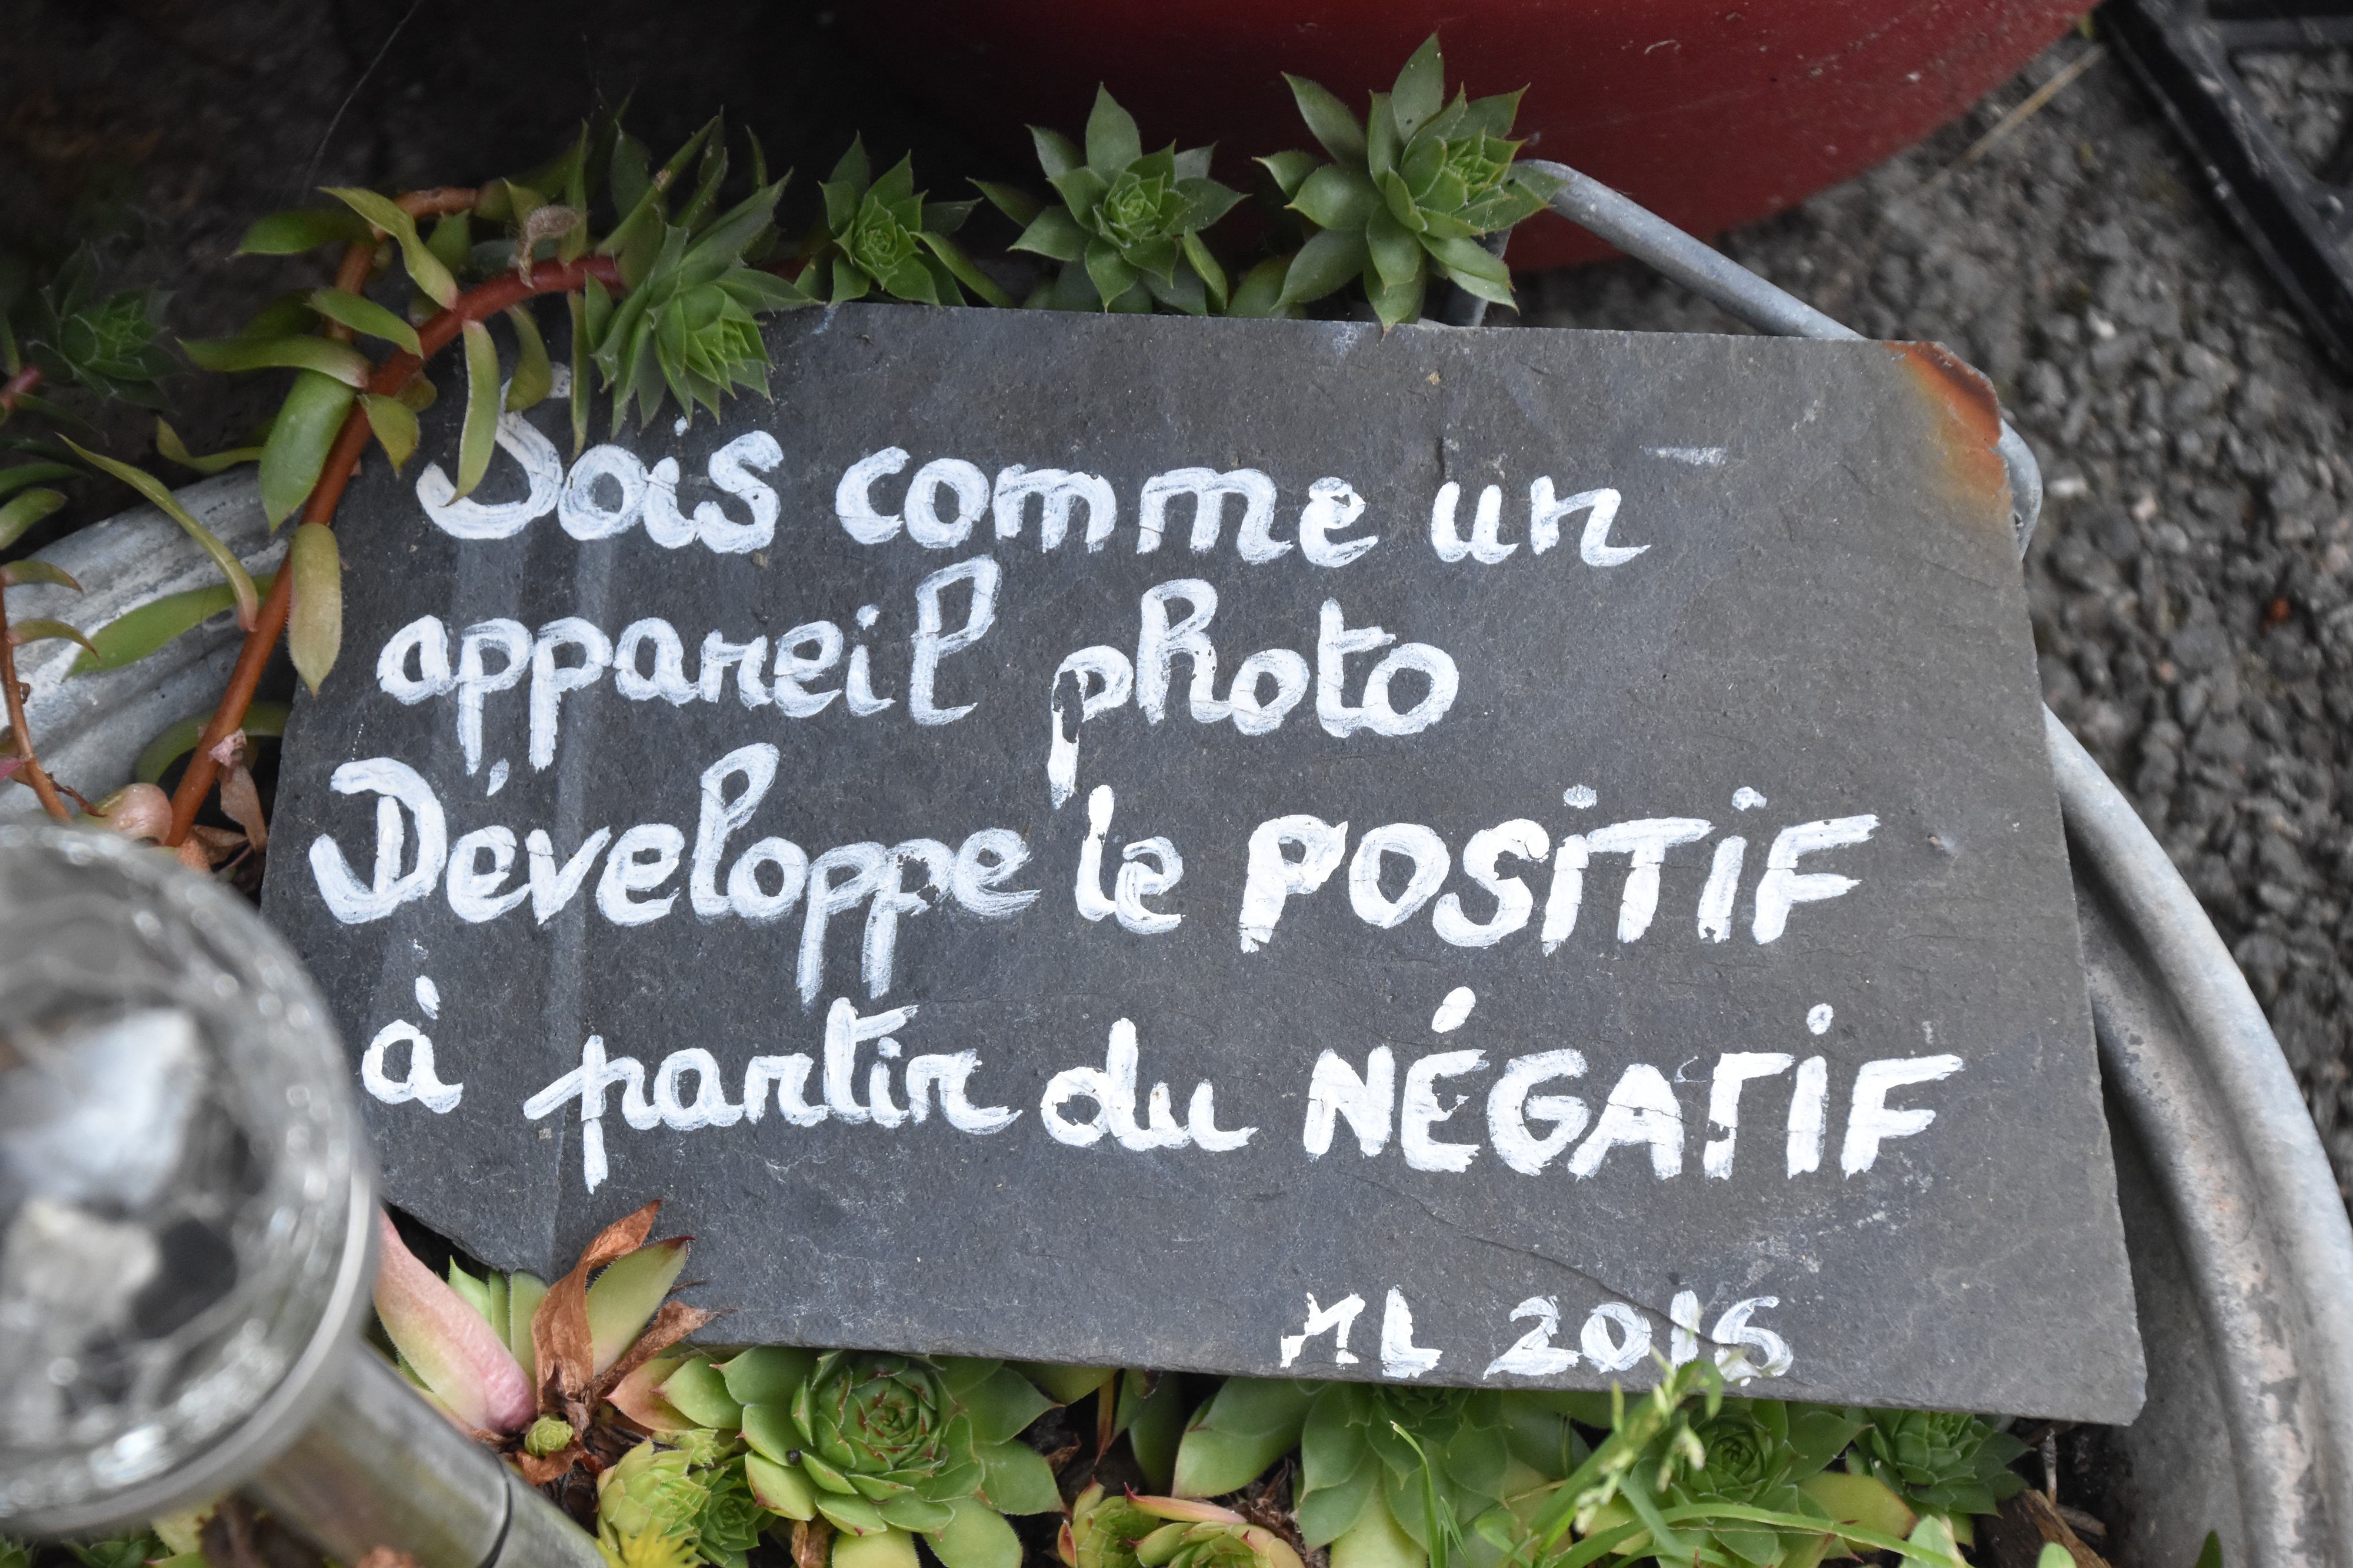 Sois comme un
appareil photo
Développe le POSiTiF
à partir du NÉGATiF
ML 2016